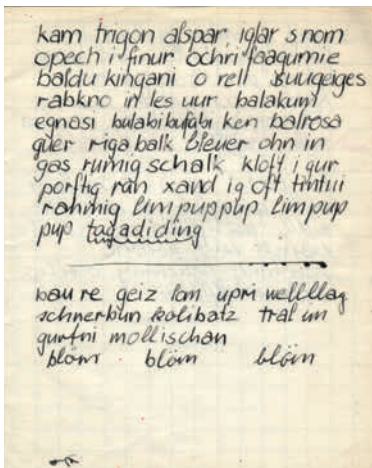 kam trigon alspar iglar snom
opech i finur ochri faagumie
baldu kingani o rell suugeiges
rabkno in les uur balakum
egnasi bulabibufabi ken balrosa
guer riga balk bleuer ohn in
gas rumig schalk kloft i gur
porftig ran xand ig oft tintiii
rahmig limpuppup limpup
pup tagadiding
baure geiz lom upri welllag
schnerbun kolibatz tral un
gurfni mollischan
blöm blöm blöm